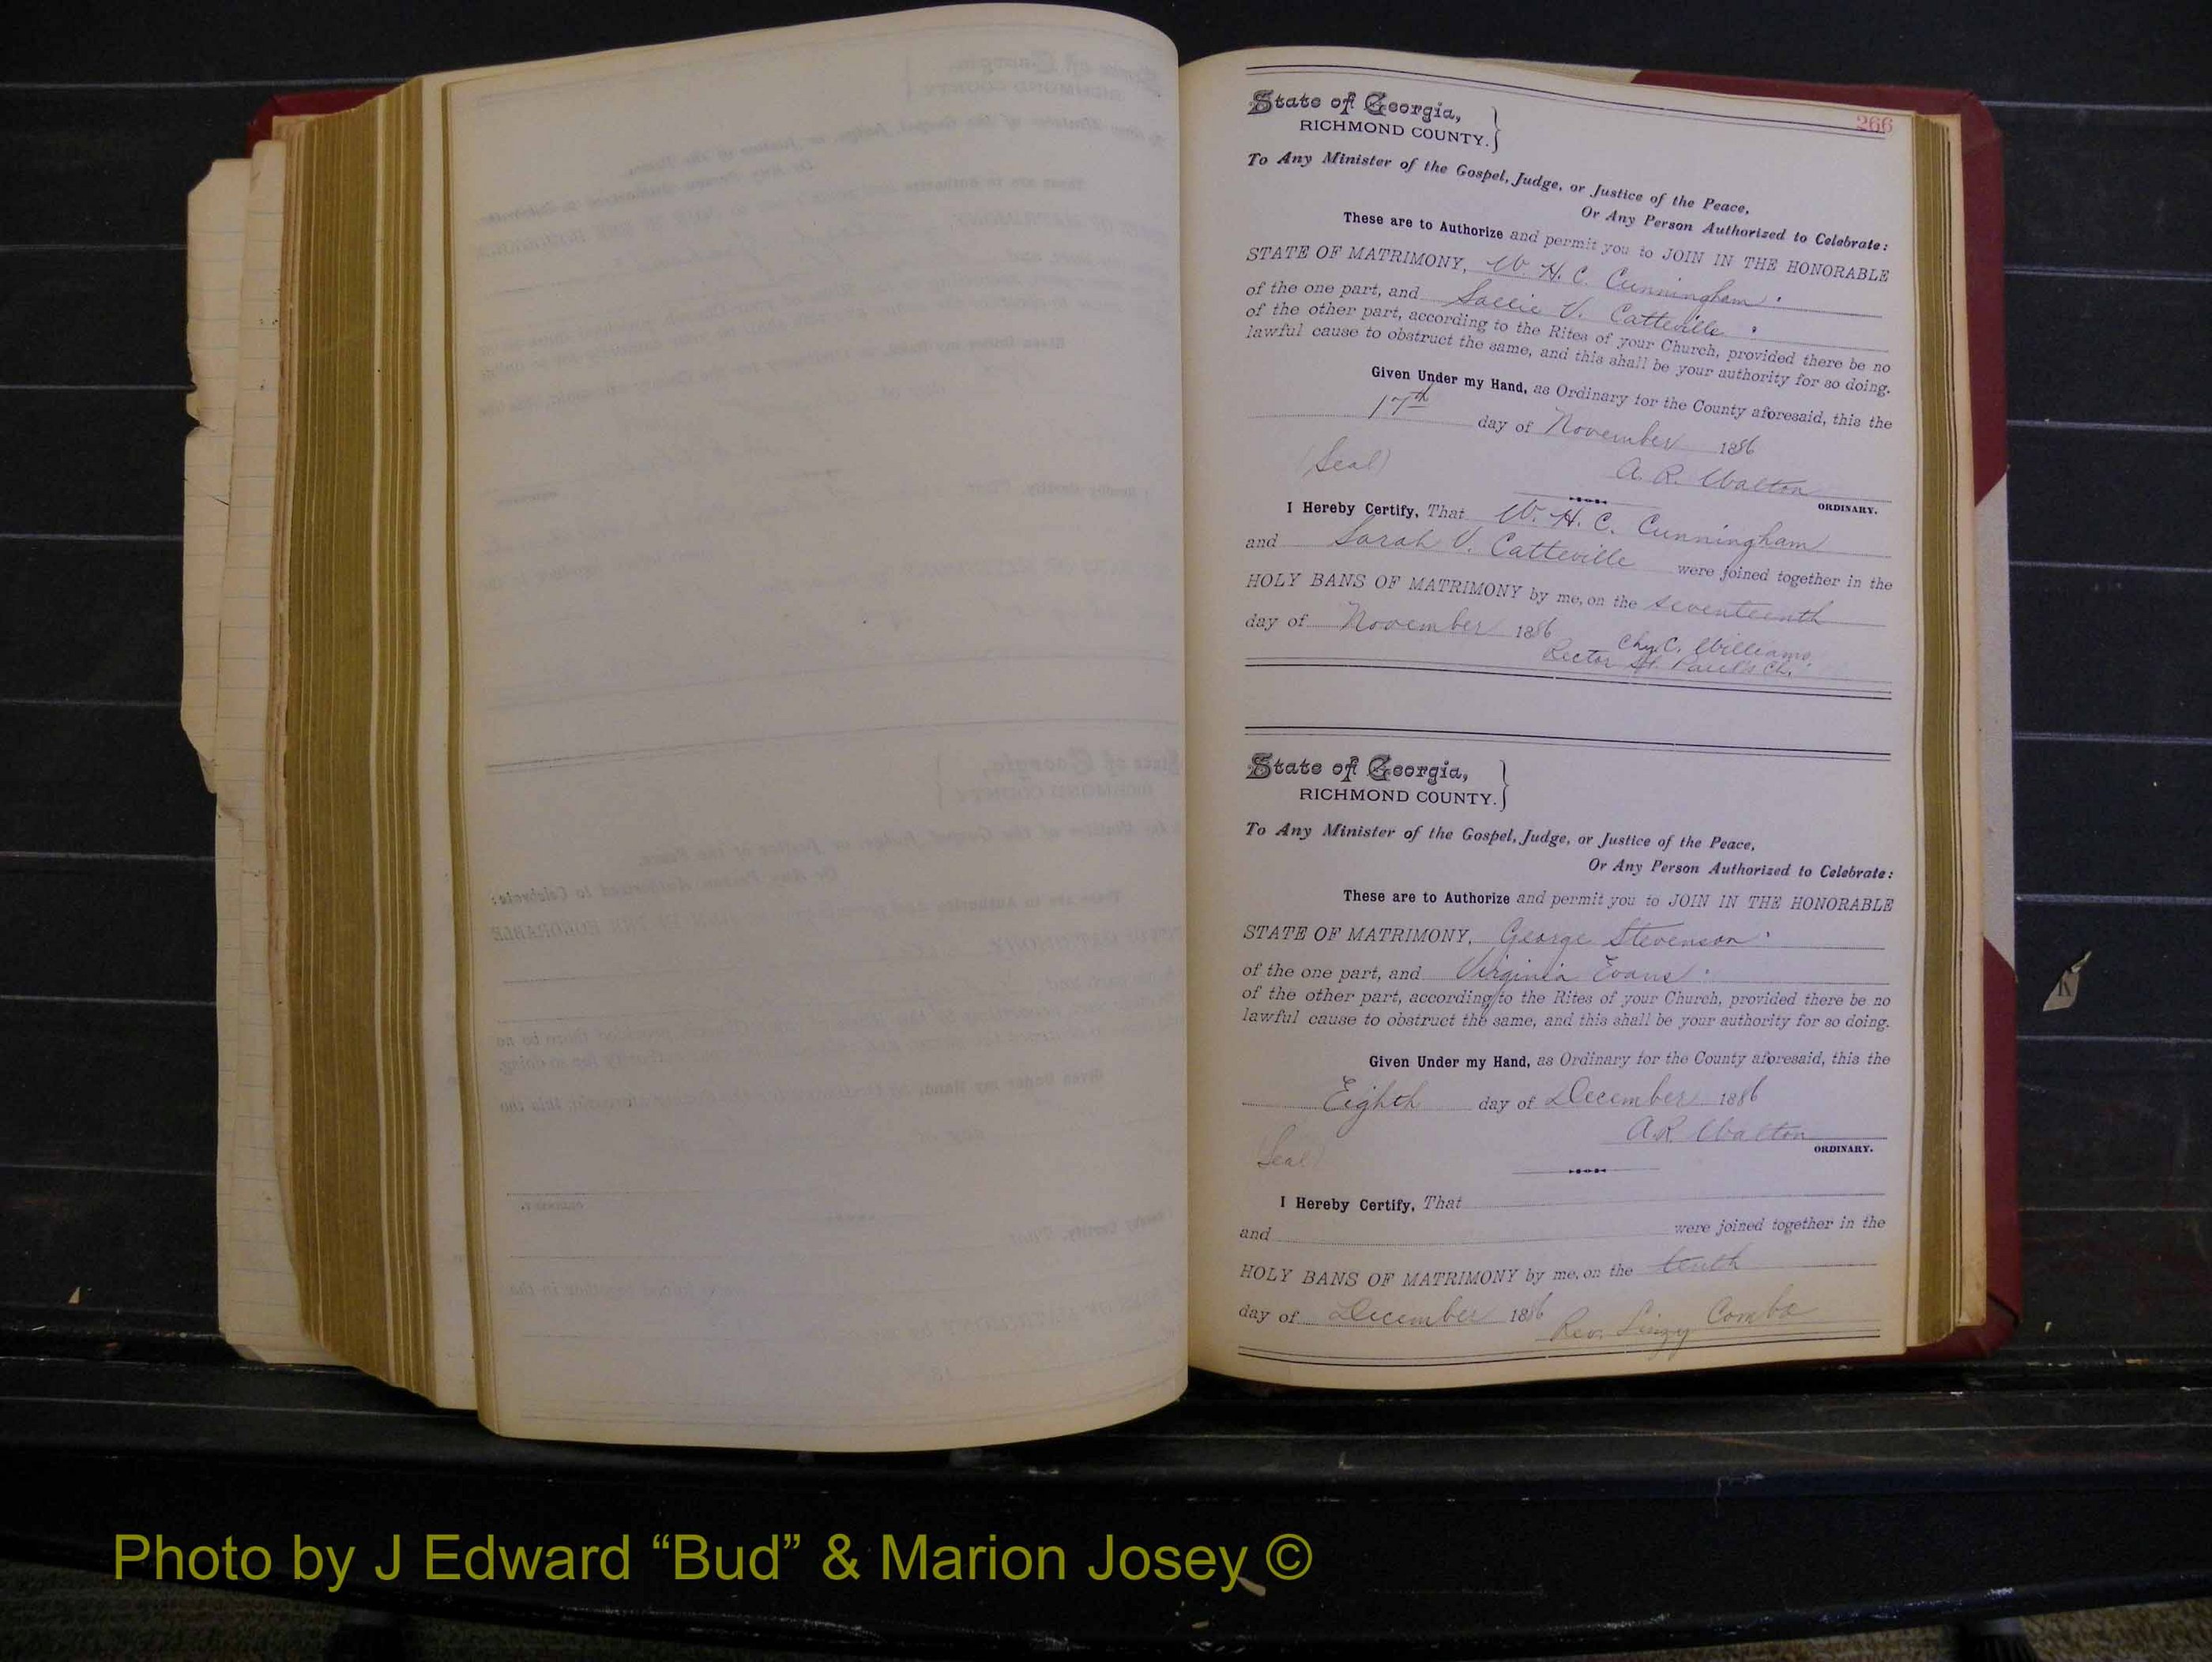 266
State of Georgia,
RICHMOND COUNTY.
To Any Minister of the Gospel, Judge, or Justice of the Peace,
Or Any Person Authorized to Celebrate:
These are to Authorize and permit you to JOIN IN THE HONORABLE
STATE OF MATRIMONY, W. H. C. Cunningham
of the one part, and Sallie V. Catteville
of the other part, according to the Rites of your Church, provided there be no
lawful cause to obstruct the same, and this shall be your authority for so doing.
Given Under my Hand, as Ordinary for the County aforesaid, this the
17th day of November 1886
(Seal) A. R. Walton
ORDINARY.
I Hereby Certify, That W. H. C. Cunningham
and Sarah V. Catteville were joined together in the
HOLY BANS OF MATRIMONY by me, on the seventeenth
day of November 1886
Chas. C. Williams,
Rector St. Paul's Ch.
State of Georgia,
RICHMOND COUNTY.
To Any Minister of the Gospel, Judge, or Justice of the Peace,
Or Any Person Authorized to Celebrate:
These are to Authorize and permit you to JOIN IN THE HONORABLE
STATE OF MATRIMONY, George Stevenson
of the one part, and Virginia Evans
of the other part, according to the Rites of your Church, provided there be no
lawful cause to obstruct the same, and this shall be your authority for so doing.
Given Under my Hand, as Ordinary for the County aforesaid, this the
Eighth day of December 1886
A. R. Walton
(Seal) ORDINARY.
I Hereby Certify, That
and were joined together in the
HOLY BANS OF MATRIMONY by me, on the tenth
day of December 1886 Rev. Linzy Combs
Photo by J Edward “Bud” & Marion Josey ©